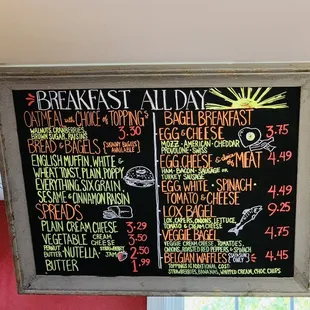 BREAKFAST ALL DAY
OATMEAL with CHOICE of TOPPING
WALNUTS, CRANBERRIES,
BROWN SUGAR, RAISINS 3.50
BREAD & BAGELS (SKINNY BAGELS AVAILABLE)
ENGLISH MUFFIN, WHITE &
WHEAT TOAST, PLAIN, POPPY
EVERYTHING, SIX GRAIN,
SESAME & CINNAMON RAISIN
SPREADS
PLAIN CREAM CHEESE 3.29
VEGETABLE CREAM CHEESE 3.50
PEANUT BUTTER, "NUTELLA" STRAWBERRY JAM 2.50
BUTTER 1.99
BAGEL BREAKFAST
EGG & CHEESE 3.75
MOZZ - AMERICAN - CHEDDAR
PROVOLONE - SWISS
EGG, CHEESE & MEAT 4.49
HAM - BACON - SAUSAGE OR
TURKEY SAUSAGE
EGG WHITE - SPINACH -
TOMATO & CHEESE 4.49
LOX BAGEL 9.25
LOX, CAPERS, ONIONS, LETTUCE,
TOMATO & CREAM CHEESE
VEGGIE BAGEL 4.75
VEGGIE CREAM CHEESE, TOMATOES,
ONIONS, CUCUMBERS, LETTUCE
BELGIAN WAFFLES ONLY 4.45
TOPPINGS @ ADDITIONAL COST:
STRAWBERRIES, BANANAS, WHIPPED CREAM, CHOC. CHIPS